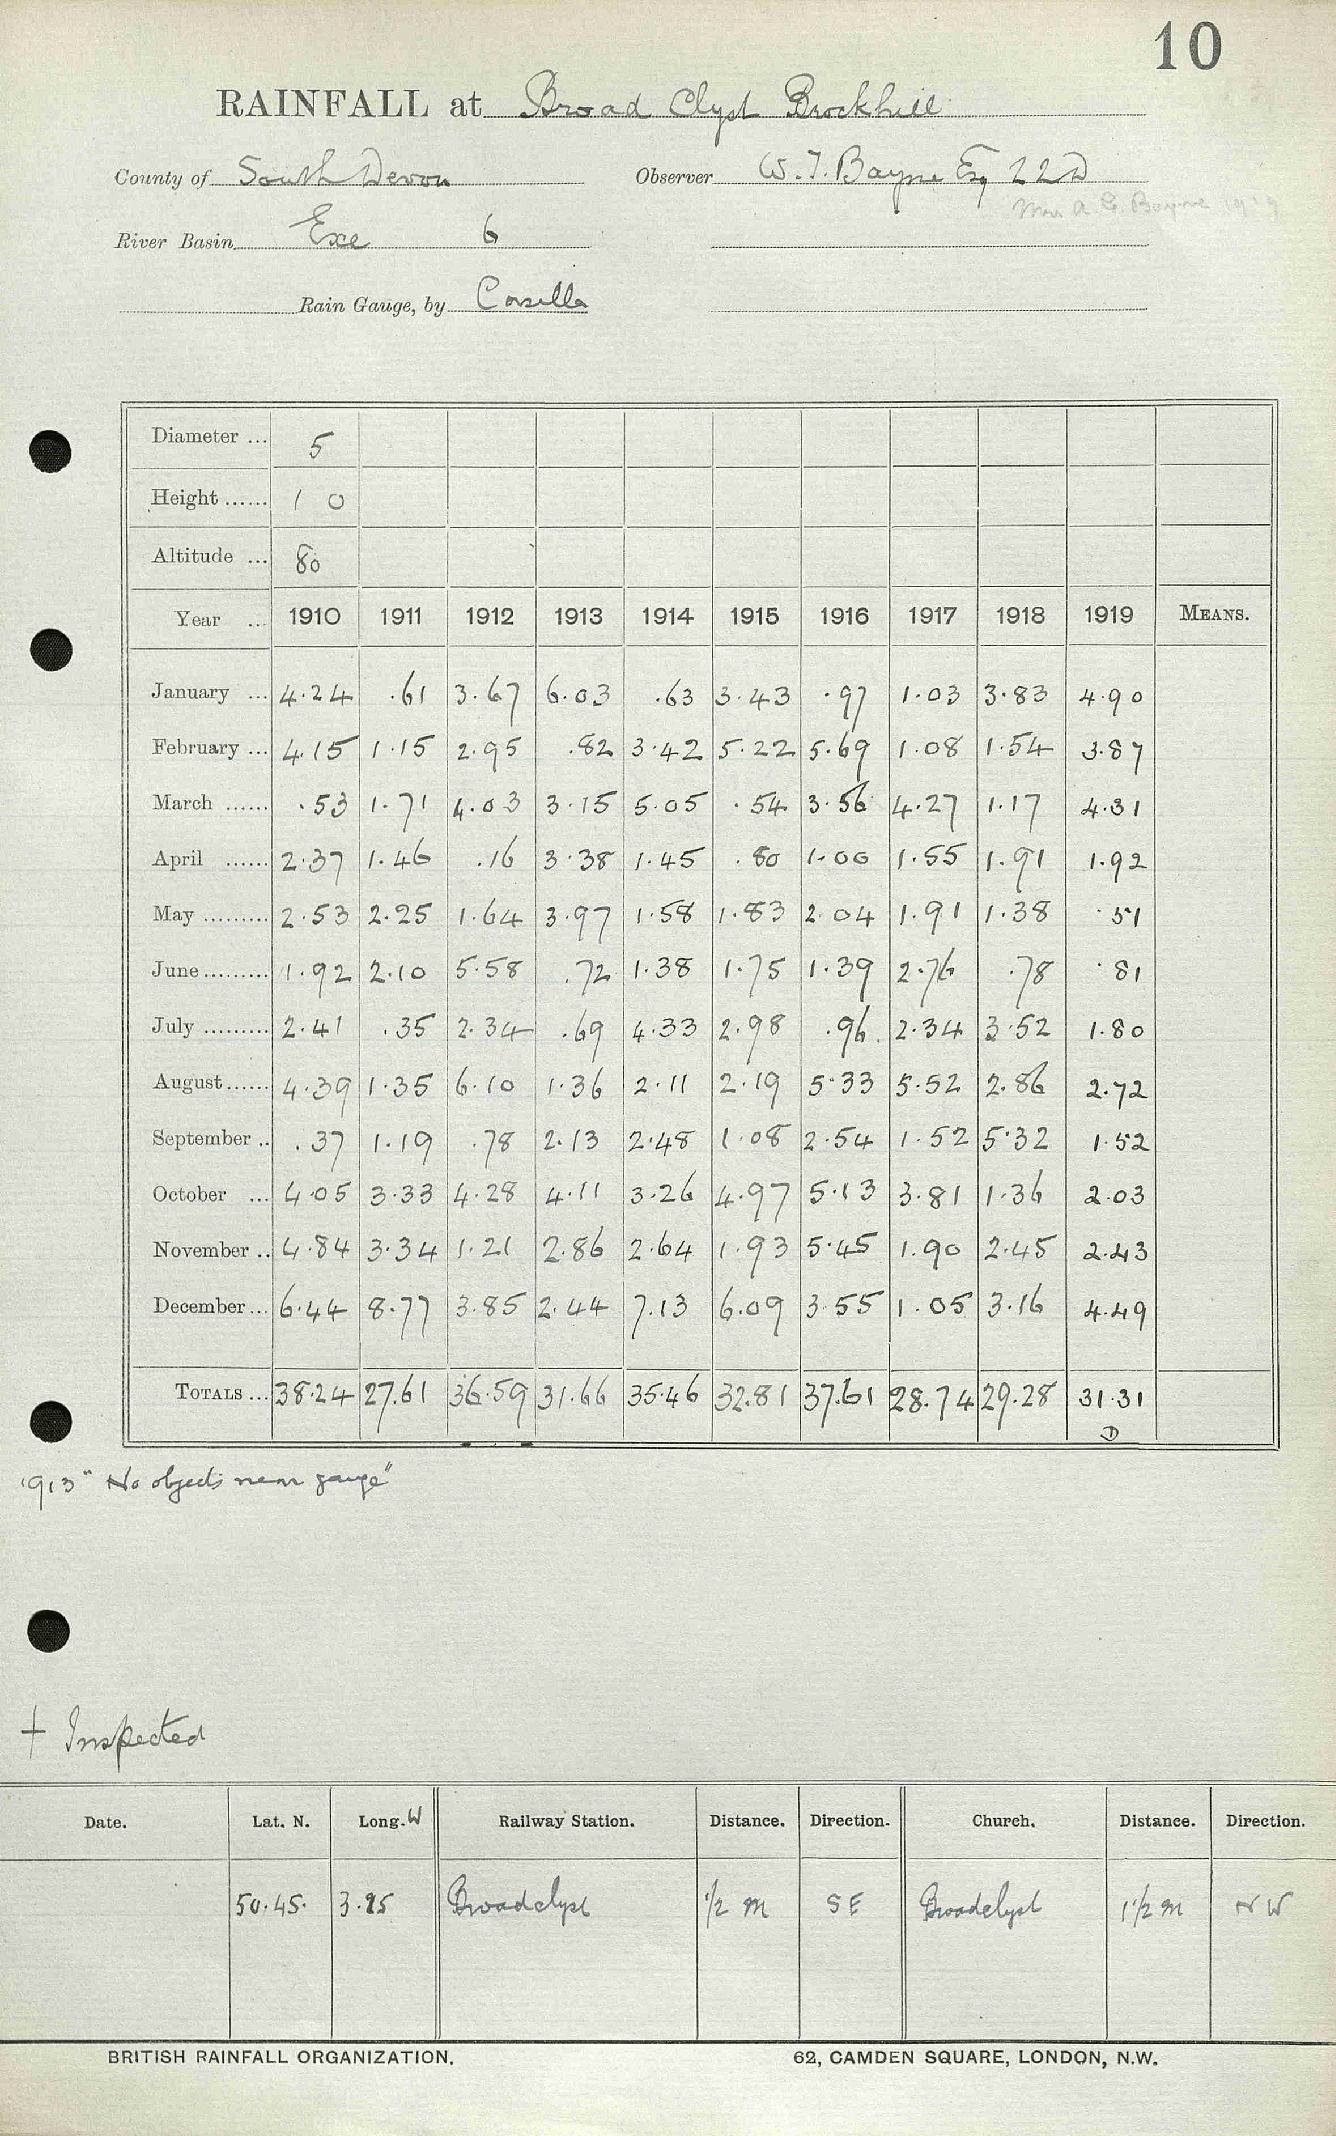 10
RAINFALL at Broad Clyst Brockhill
County of South Devon Observer W. T. Bayne Esq 22D
Mrs A. G. Bayne 1919
River Basin Exe 6
Rain Gauge, by Casella
Diameter ... 5
Height ...... 1 0
Altitude ... 80
Year ... 1910 1911 1912 1913 1914 1915 1916 1917 1918 1919 MEANS.
January ... 4.24 .61 3.67 6.03 .63 3.43 .97 1.03 3.83 4.90
February ... 4.15 1.15 2.95 .82 3.42 5.22 5.69 1.08 1.54 3.87
March ...... .53 1.71 4.03 3.15 5.05 .54 3.56 4.27 1.17 4.31
April ...... 2.37 1.46 .16 3.38 1.45 .80 1.00 1.55 1.91 1.92
May ......... 2.53 2.25 1.64 3.97 1.58 1.83 2.04 1.91 1.38 .51
June ......... 1.92 2.10 5.58 .72 1.38 1.75 1.39 2.76 .78 .81
July ......... 2.41 .35 2.34 .69 4.33 2.98 .96 2.34 3.52 1.80
August ...... 4.39 1.35 6.10 1.36 2.11 2.19 5.33 5.52 2.86 2.72
September .. .37 1.19 .78 2.13 2.48 1.08 2.54 1.52 5.32 1.52
October ... 4.05 3.33 4.28 4.11 3.26 4.97 5.13 3.81 1.36 2.03
November .. 4.84 3.34 1.21 2.86 2.64 1.93 5.45 1.90 2.45 2.43
December ... 6.44 8.77 3.85 2.44 7.13 6.09 3.55 1.05 3.16 4.49
TOTALS ... 38.24 27.61 36.59 31.66 35.46 32.81 37.61 28.74 29.28 31.31
D
1913 "No objects near gauge"
† Inspected
Date. Lat. N. Long. W Railway Station. Distance. Direction. Church. Distance. Direction.
50.45. 3.25 Broadclyst 1/2 m SE Broadclyst 1 1/2 m NW
BRITISH RAINFALL ORGANIZATION. 62, CAMDEN SQUARE, LONDON, N.W.